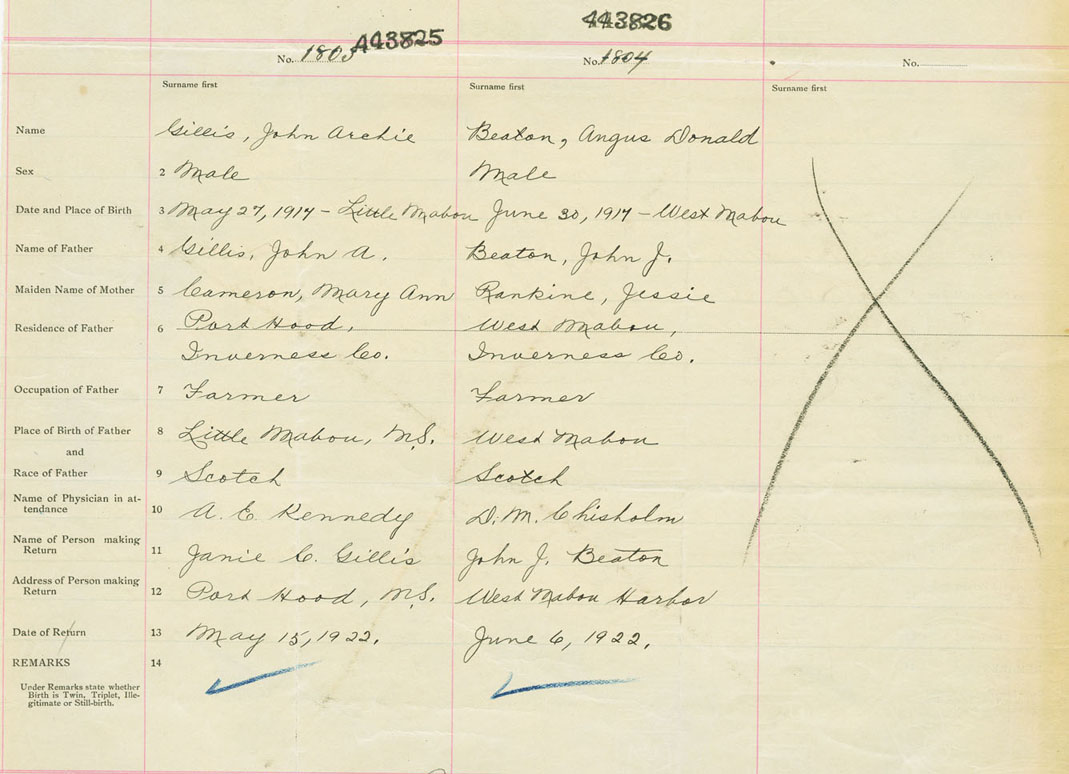 443825
443826
No. 1803
No. 1804
No.
Surname first
Surname first
Surname first
Name
Gillis, John Archie
Beaton, Angus Donald
Sex
2 Male
Male
Date and Place of Birth
3 May 27, 1917 - Little Mabou
June 30, 1917 - West Mabou
Name of Father
4 Gillis, John A.
Beaton, John J.
Maiden Name of Mother
5 Cameron, Mary Ann
Rankine, Jessie
Residence of Father
6 Port Hood,
Inverness Co.
West Mabou,
Inverness Co.
Occupation of Father
7 Farmer
Farmer
Place of Birth of Father
8 Little Mabou, N.S.
West Mabou
and
Race of Father
9 Scotch
Scotch
Name of Physician in at-
tendance
10 A. E. Kennedy
D. M. Chisholm
Name of Person making
Return
11 Janie C. Gillis
John J. Beaton
Address of Person making
Return
12 Port Hood, N.S.
West Mabou Harbor
Date of Return
13 May 15, 1922.
June 6, 1922.
REMARKS
14
Under Remarks state whether
Birth is Twin, Triplet, Ille-
gitimate or Still-birth.